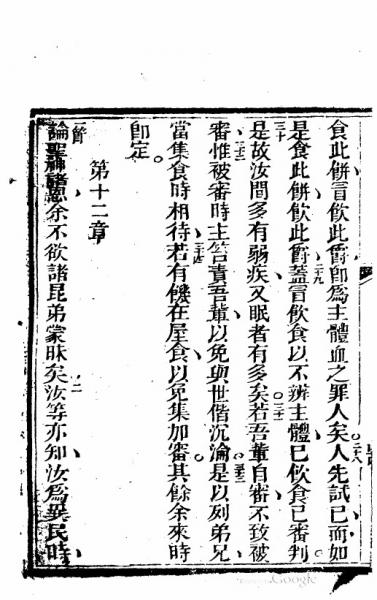 食此餅冒飲此爵卽爲主體血之罪人矣人先試已而如
是食此餅飲此爵蓋冒飲食以不辨主體已飲食已審判
是故汝間多有弱疾又眠者有多矣若吾輩自審不致被
審惟被審時主笞責吾輩以免與世偕沉淪是以列弟兄
當集食時相待若有饑在屋食以免集加審其餘余來時
卽定
第十二章
論聖神諸恩余不欲諸昆弟蒙昧矣汝等亦知汝爲異民時
Google